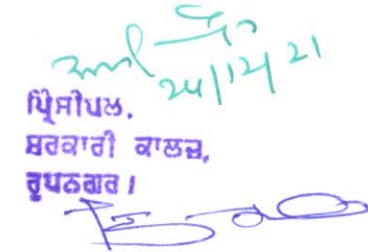 24/12/21
ਪ੍ਰਿੰਸੀਪਲ,
ਸਰਕਾਰੀ ਕਾਲਜ,
ਰੂਪਨਗਰ।